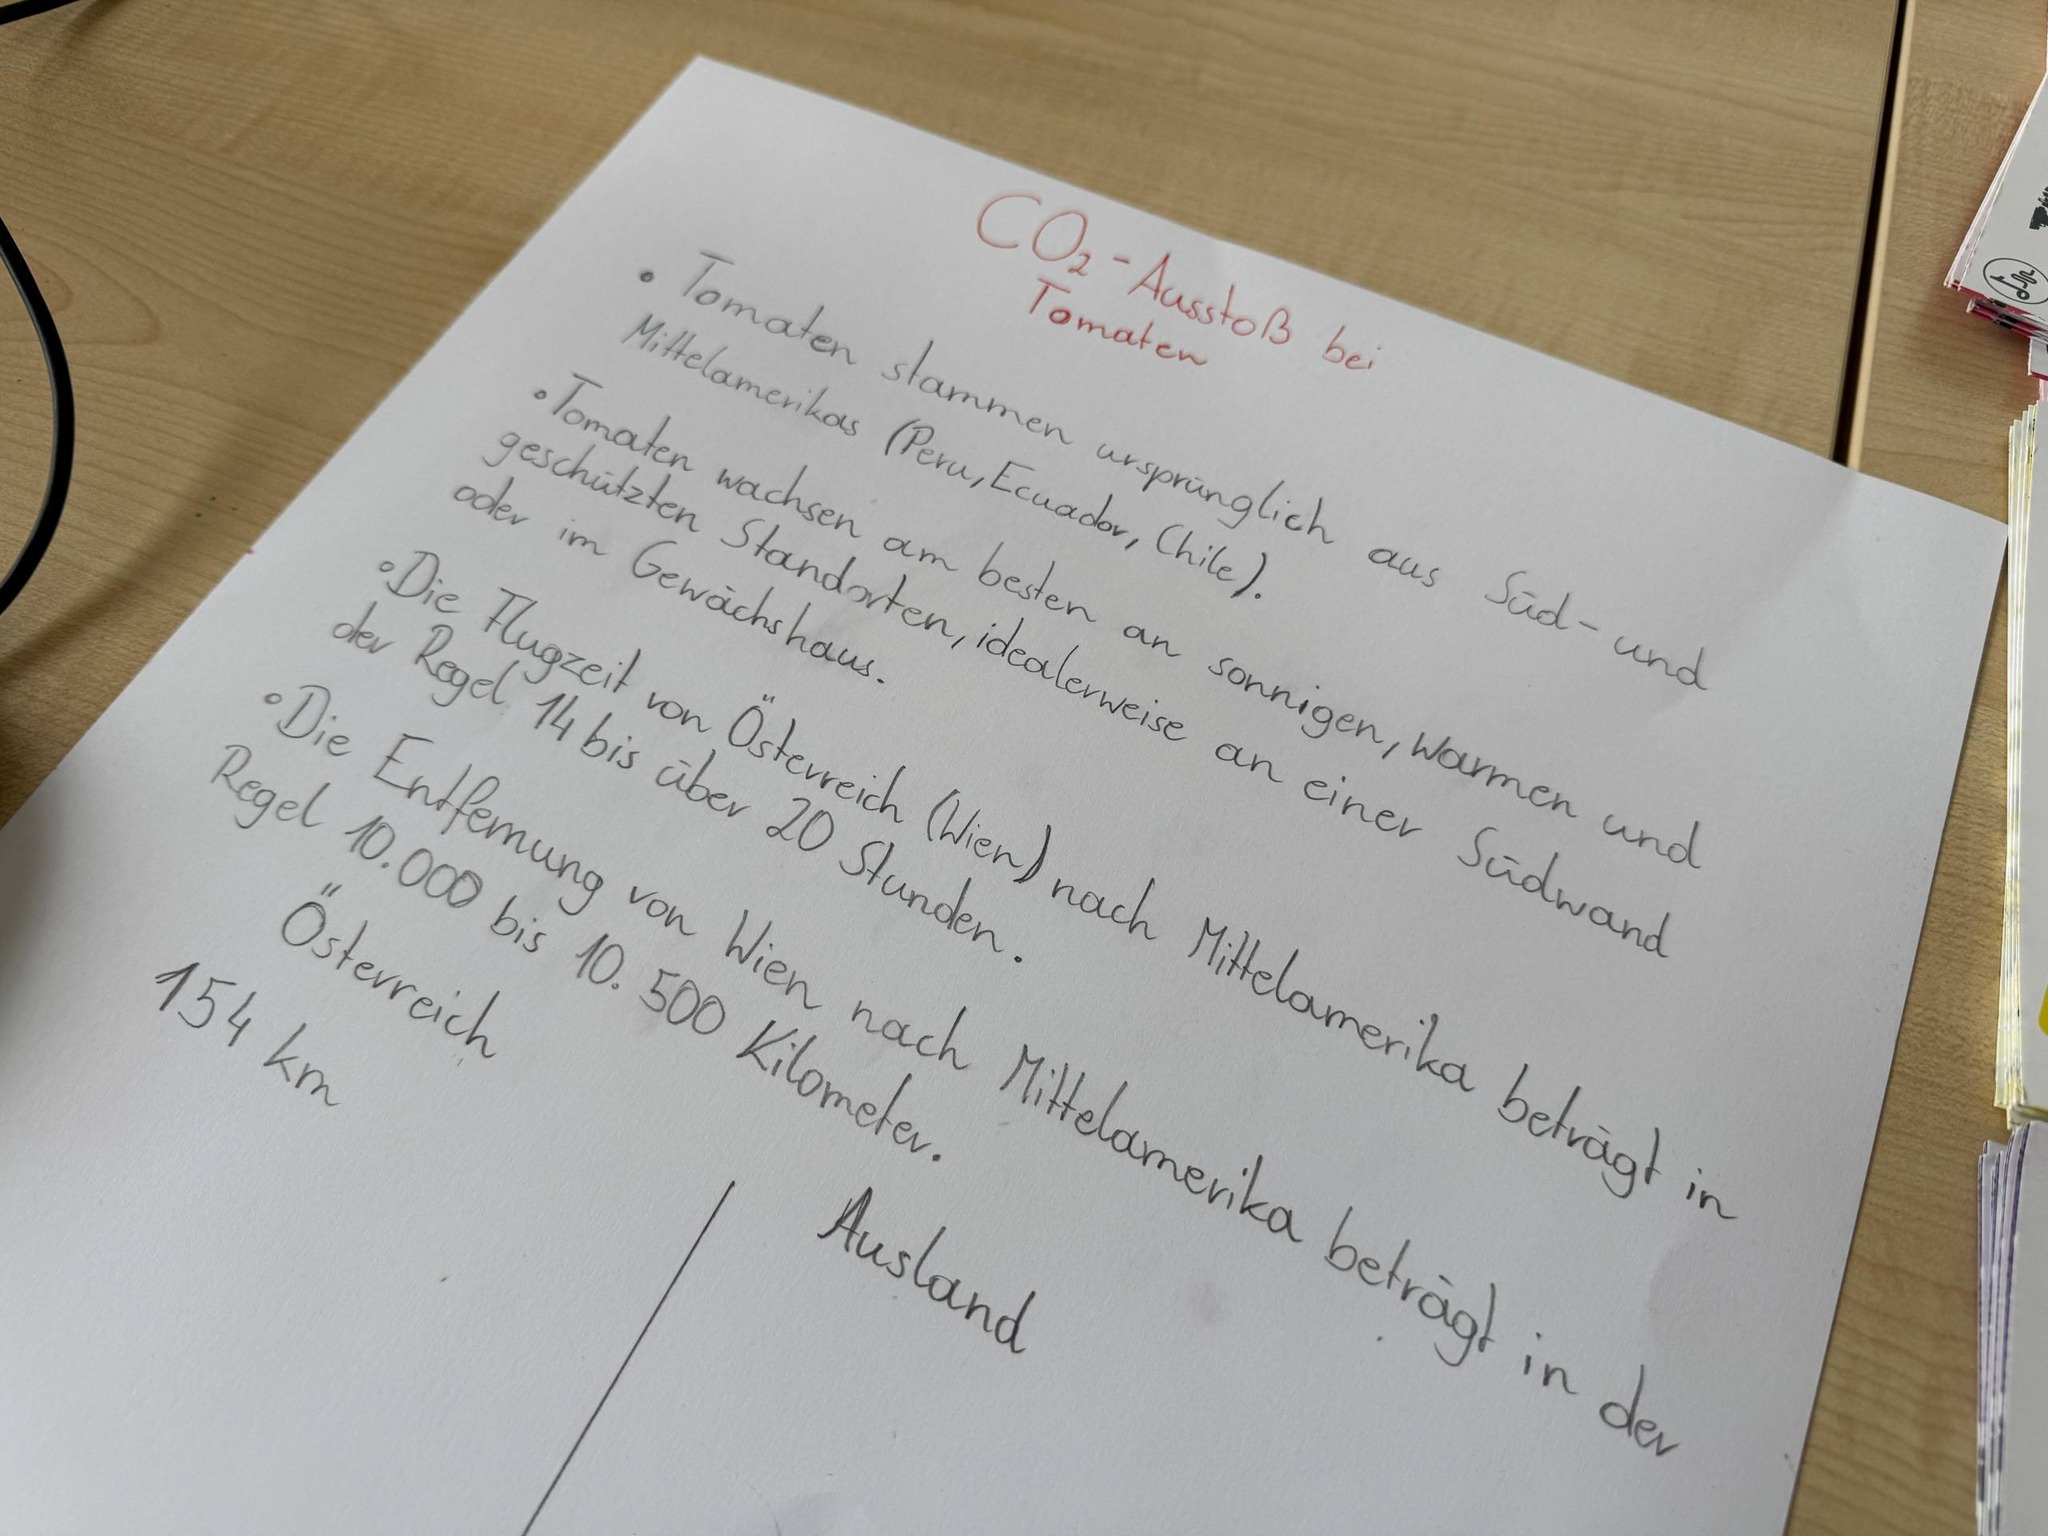 CO₂-Ausstoß bei
Tomaten
• Tomaten stammen ursprünglich aus Süd- und
Mittelamerikas (Peru, Ecuador, Chile).
• Tomaten wachsen am besten an sonnigen, warmen und
geschützten Standorten, idealerweise an einer Südwand
oder im Gewächshaus.
• Die Flugzeit von Österreich (Wien) nach Mittelamerika beträgt in
der Regel 14 bis über 20 Stunden.
• Die Entfernung von Wien nach Mittelamerika beträgt in der
Regel 10.000 bis 10.500 Kilometer.
Österreich
154 km
Ausland